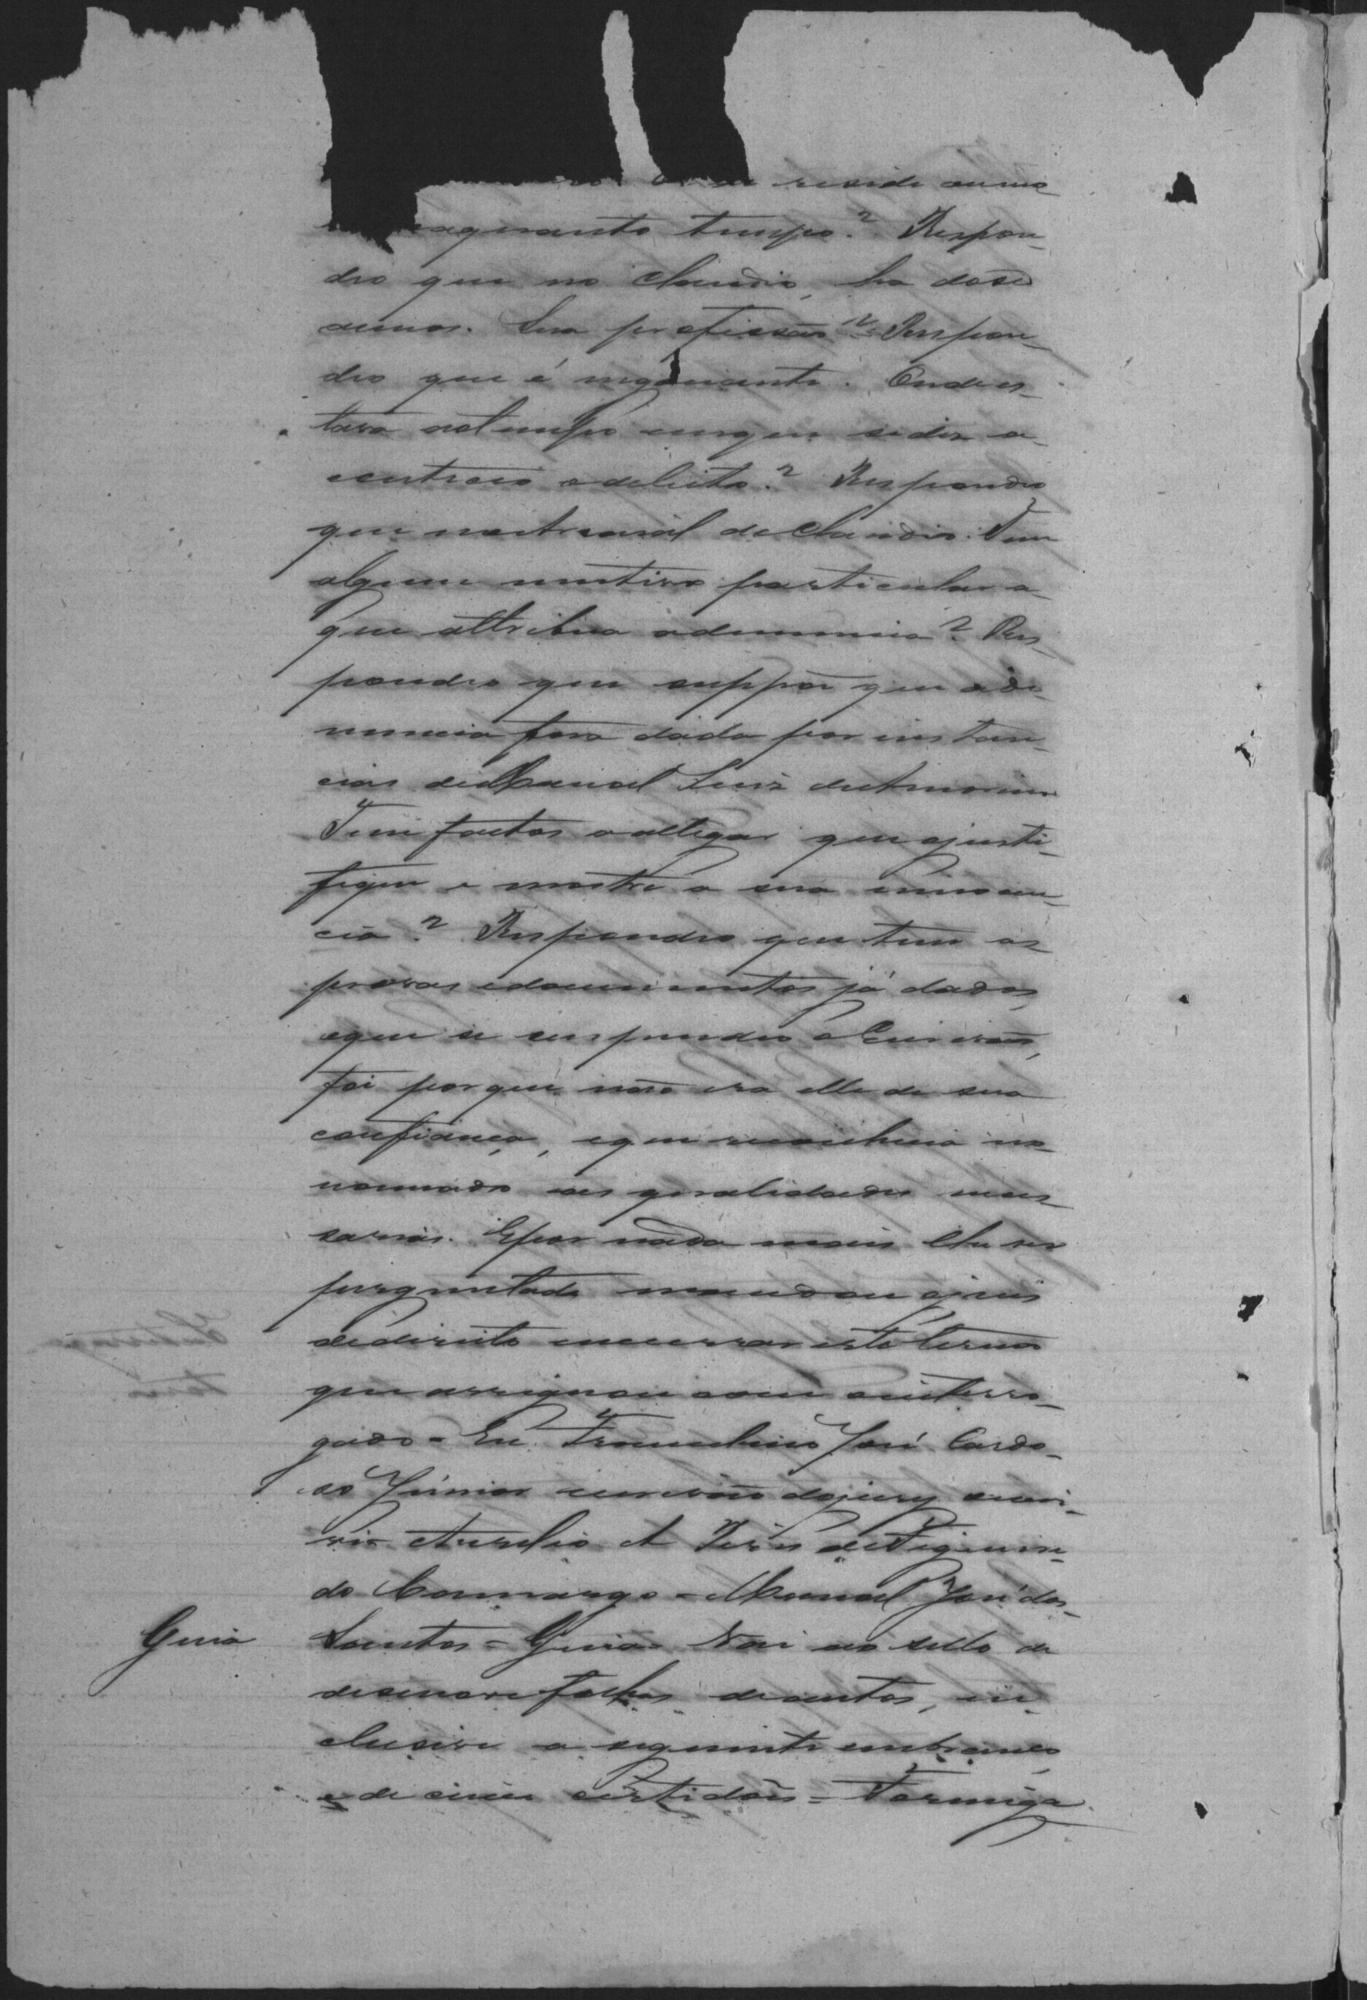 reside ou mo
quanto tempo? Respon-
deo que no Claudio, ha dose
annos. Sua profissão? Respon-
deo que é negociante. Onde es-
tava ao tempo em que se diz a-
conteceo o delicto? Respondeo
que no Arraial do Claudio. Tem
algum motivo particular a
que attribua a denuncia? Res-
pondeo que suppõe que a de-
nuncia fora dada por instan-
cias de Manoel Luiz de Amorim
Tem factos a allegar que o justi-
fique e mostre a sua innocen-
cia? Respondeo que tem as
provas e documentos já dados,
e que se suspendeo o Escrivão,
foi porque não era elle de sua
confiança, e que reconhecia no
nomeado as qualidades neces-
sarias. E por nada mais lhe ser
perguntado mandou o juiz
de direito encerrar este termo
que assignou com o interro-
gado - Eu Francelino José Cardo-
so Júnior escrivão do jury escre-
vi - Aurelio A Pires de Figueire-
do Camargo - Manoel José dos
Santos = Guia - Vai ao sello de
Guia
desenove folhas de autos, in-
clusive a seguinte em branco,
e de cinco certidões = Formiga